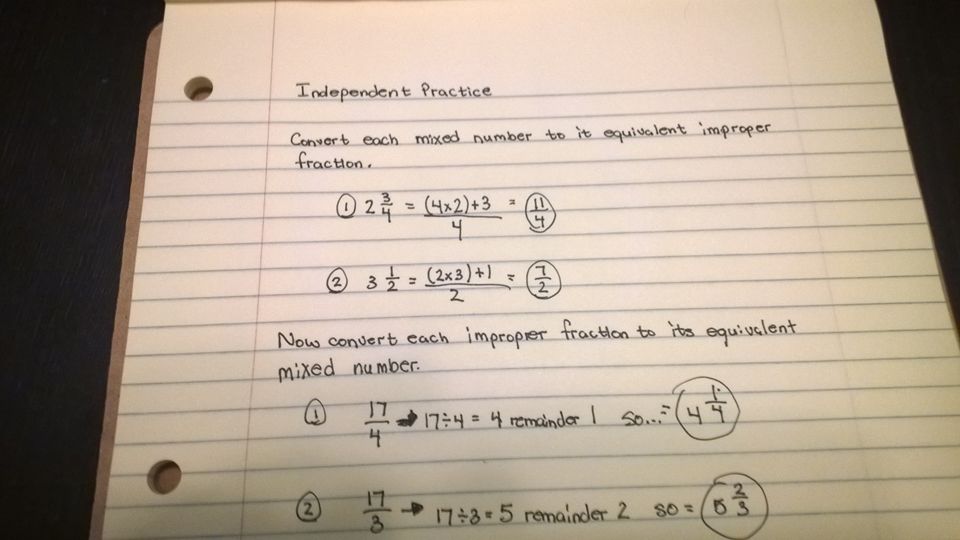 Independent Practice
Convert each mixed number to it equivalent improper
fraction.
① 2 3/4 = (4×2)+3/4 = 11/4
② 3 1/2 = (2×3)+1/2 = 7/2
Now convert each improper fraction to its equivalent
mixed number.
① 17/4 → 17÷4 = 4 remainder 1 so...= 4 1/4
② 17/3 → 17÷3 = 5 remainder 2 so = 5 2/3